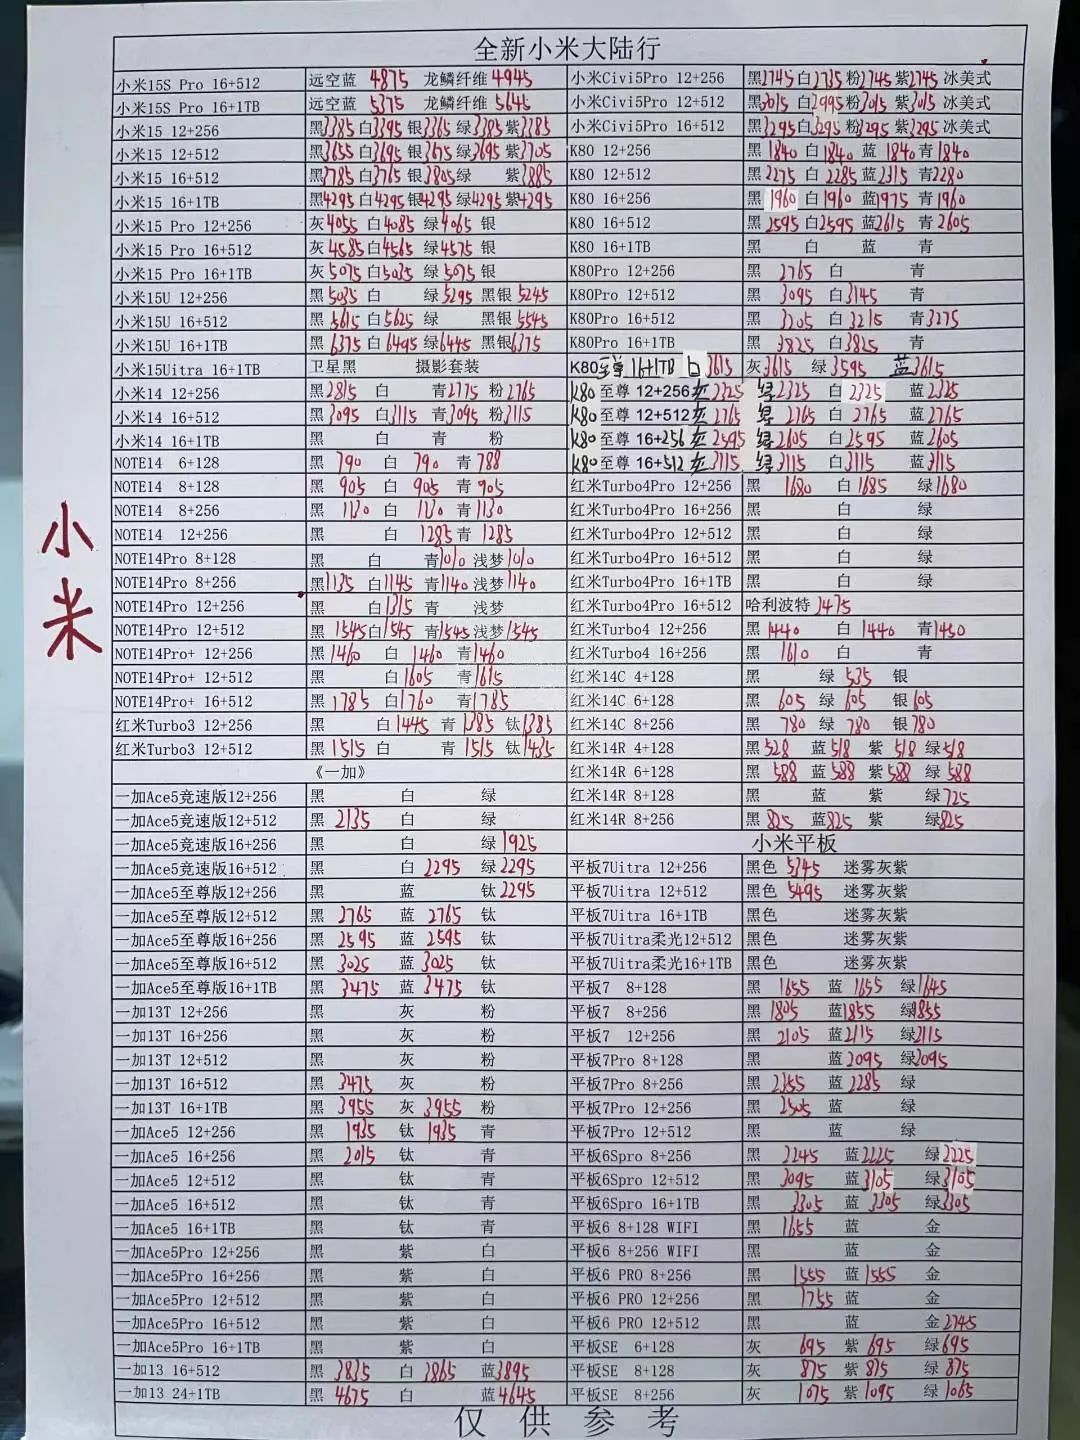 全新小米大陆行
小米15S Pro 16+512 远空蓝 4875 龙鳞纤维 4945
小米15S Pro 16+1TB 远空蓝 5375 龙鳞纤维 5645
小米15 12+256 黑3385 白3395 银3365 绿3385 紫3385
小米15 12+512 黑3655 白3695 银3675 绿3695 紫3705
小米15 16+512 黑3785 白3765 银3805 绿 紫3885
小米15 16+1TB 黑4295 白4295 银4295 绿4295 紫4295
小米15 Pro 12+256 灰4055 白4085 绿4065 银
小米15 Pro 16+512 灰4585 白4565 绿4575 银
小米15 Pro 16+1TB 灰5075 白5035 绿5075 银
小米15U 12+256 黑5035 白 绿5295 黑银5245
小米15U 16+512 黑5615 白5625 绿 黑银5545
小米15U 16+1TB 黑6375 白6495 绿6445 黑银6375
小米15Uitra 16+1TB 卫星黑 摄影套装
小米14 12+256 黑2815 白 青2775 粉2765
小米14 16+512 黑3095 白3115 青3095 粉3115
小米14 16+1TB 黑 白 青 粉
NOTE14 6+128 黑 790 白 790 青 788
NOTE14 8+128 黑 905 白 905 青 905
NOTE14 8+256 黑 1130 白 1130 青 1130
NOTE14 12+256 黑 白 1285 青 1285
NOTE14Pro 8+128 黑 白 青1010 浅梦1010
NOTE14Pro 8+256 黑1135 白1145 青1140 浅梦1140
NOTE14Pro 12+256 黑 白1315 青 浅梦
NOTE14Pro 12+512 黑 1545 白1545 青1545 浅梦1545
NOTE14Pro+ 12+256 黑1460 白 1460 青1460
NOTE14Pro+ 12+512 黑 白1605 青1615
NOTE14Pro+ 16+512 黑1785 白1760 青1785
红米Turbo3 12+256 黑 白1445 青 1385 钛1385
红米Turbo3 12+512 黑 1515 白 青 1515 钛1435
《一加》
一加Ace5竞速版12+256 黑 白 绿
一加Ace5竞速版12+512 黑 2135 白 绿
一加Ace5竞速版16+256 黑 白 绿1925
一加Ace5竞速版16+512 黑 白 2295 绿2295
一加Ace5至尊版12+256 黑 蓝 钛2295
一加Ace5至尊版12+512 黑 2765 蓝 2765 钛
一加Ace5至尊版16+256 黑 2595 蓝 2595 钛
一加Ace5至尊版16+512 黑 3025 蓝 3025 钛
一加Ace5至尊版16+1TB 黑 3475 蓝 3475 钛
一加13T 12+256 黑 灰 粉
一加13T 16+256 黑 灰 粉
一加13T 12+512 黑 灰 粉
一加13T 16+512 黑 3475 灰 粉
一加13T 16+1TB 黑 3955 灰 3955 粉
一加Ace5 12+256 黑 1935 钛 1935 青
一加Ace5 16+256 黑 2015 钛 青
一加Ace5 12+512 黑 钛 青
一加Ace5 16+512 黑 钛 青
一加Ace5 16+1TB 黑 钛 青
一加Ace5Pro 12+256 黑 紫 白
一加Ace5Pro 16+256 黑 紫 白
一加Ace5Pro 12+512 黑 紫 白
一加Ace5Pro 16+512 黑 紫 白
一加Ace5Pro 16+1TB 黑 紫 白
一加13 16+512 黑 3835 白 3865 蓝3895
一加13 24+1TB 黑 4675 白 蓝4645
小米Civi5Pro 12+256 黑2745 白2735 粉2745 紫2745 冰美式
小米Civi5Pro 12+512 黑3015 白2995 粉3015 紫3015 冰美式
小米Civi5Pro 16+512 黑3295 白3295 粉3295 紫3295 冰美式
K80 12+256 黑 1840 白 1840 蓝 1840 青1840
K80 12+512 黑 2275 白 2285 蓝2315 青2280
K80 16+256 黑 1960 白1960 蓝1975 青1960
K80 16+512 黑2595 白2595 蓝2615 青2605
K80 16+1TB 黑 白 蓝 青
K80Pro 12+256 黑 2765 白 青
K80Pro 12+512 黑 3095 白3145 青
K80Pro 16+512 黑 3205 白 3215 青3275
K80Pro 16+1TB 黑 3825 白3825 青
K80至尊 16+1TB 白 3615 灰3615 绿 3595 蓝3615
K80 至尊 12+256 灰2325 绿2325 白 2325 蓝2325
K80 至尊 12+512 灰2765 绿 2765 白 2765 蓝2765
K80 至尊 16+256 灰2595 绿2605 白2595 蓝2605
K80 至尊 16+512 灰3115 绿3115 白3115 蓝3115
红米Turbo4Pro 12+256 黑 1680 白1685 绿1680
红米Turbo4Pro 16+256 黑 白 绿
红米Turbo4Pro 12+512 黑 白 绿
红米Turbo4Pro 16+512 黑 白 绿
红米Turbo4Pro 16+1TB 黑 白 绿
红米Turbo4Pro 16+512 哈利波特 2475
红米Turbo4 12+256 黑1440 白 1440 青1450
红米Turbo4 16+256 黑 1610 白 青
红米14C 4+128 黑 绿 535 银
红米14C 6+128 黑 605 绿 605 银605
红米14C 8+256 黑 780 绿 780 银780
红米14R 4+128 黑528 蓝518 紫 518 绿518
红米14R 6+128 黑 588 蓝588 紫588 绿 588
红米14R 8+128 黑 蓝 紫 绿725
红米14R 8+256 黑 825 蓝825 紫 绿825
小米平板
平板7Uitra 12+256 黑色 5345 迷雾灰紫
平板7Uitra 12+512 黑色 5495 迷雾灰紫
平板7Uitra 16+1TB 黑色 迷雾灰紫
平板7Uitra柔光12+512 黑色 迷雾灰紫
平板7Uitra柔光16+1TB 黑色 迷雾灰紫
平板7 8+128 黑 1655 蓝 1655 绿1645
平板7 8+256 黑 1805 蓝1855 绿1855
平板7 12+256 黑 2105 蓝2115 绿2115
平板7Pro 8+128 黑 蓝2095 绿2095
平板7Pro 8+256 黑 2355 蓝 2285 绿
平板7Pro 12+256 黑 2505 蓝 绿
平板7Pro 12+512 黑 蓝 绿
平板6Spro 8+256 黑 2245 蓝2225 绿2225
平板6Spro 12+512 黑 3095 蓝3105 绿3105
平板6Spro 16+1TB 黑 3305 蓝 3305 绿3305
平板6 8+128 WIFI 黑 1655 蓝 金
平板6 8+256 WIFI 黑 蓝 金
平板6 PRO 8+256 黑 1555 蓝1555 金
平板6 PRO 12+256 黑 1755 蓝 金
平板6 PRO 12+512 黑 蓝 金2745
平板SE 6+128 灰 695 紫 695 绿695
平板SE 8+128 灰 875 紫 875 绿 875
平板SE 8+256 灰 1075 紫1095 绿 1065
仅供参考
小米